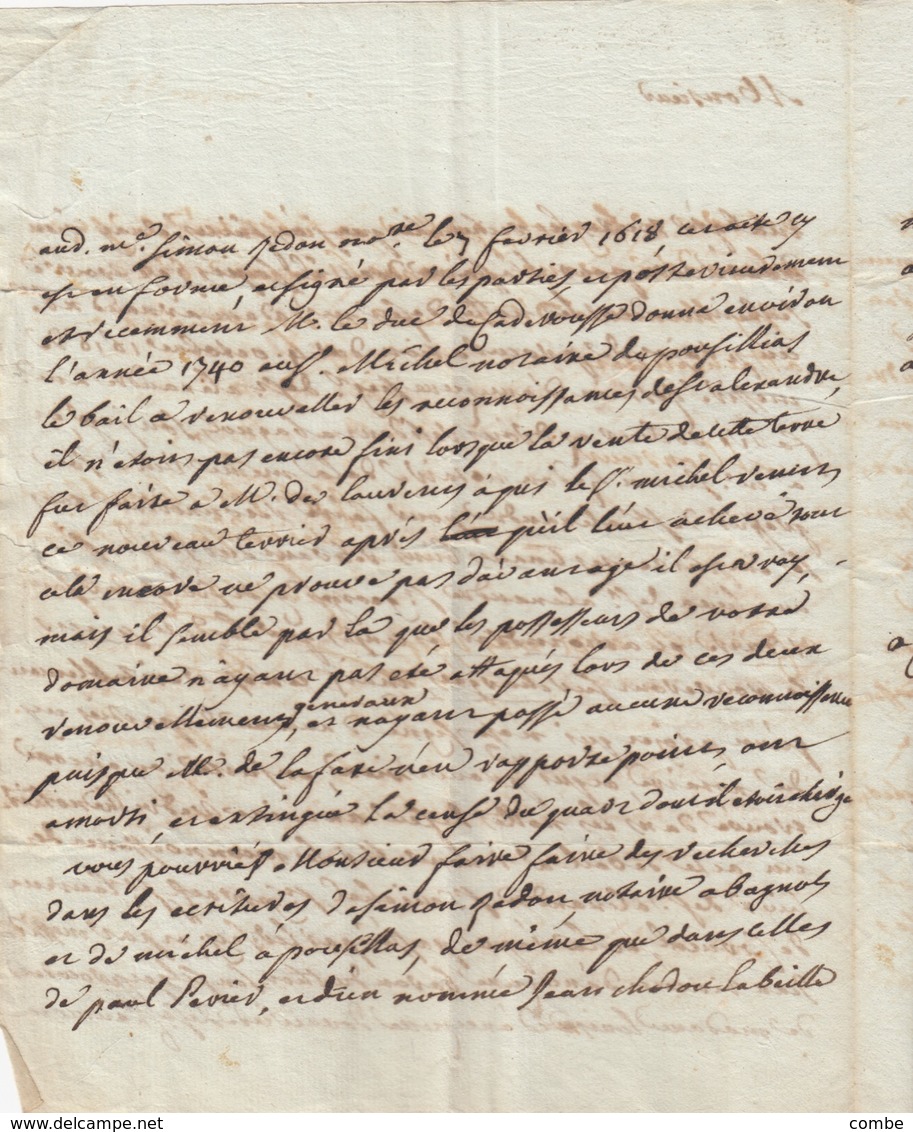 aud. me. simon sedon nore. le 7 fevrier 1618 ce acte cy
est en forme, et signé par les parties, et posterieurement
et recemment M. le duc de Cadeousse donna environ
l'année 1740 au sr. Michel notaire de pousillias
le bail a renouveller les reconnoissances de st alexandre,
il n'etoit pas encore fini lorsque la vente de cette terre
fut faite a M. de lauvens à qui le sr. michel remit
ce nouveau terrier après qu'il l'eut achevé tout
cela encore ne prouve pas d'avantage il est vray,
mais il semble par la que les possesseurs de votre
domaine n'ayant pas eté attaqués lors de ces deux
renouvellemens generaux, et n'ayant passé aucune reconnoissance
puisque M. de la fare n'en rapporte point, ont
amorti, et extingué la cense du quart dont il etoit chargé
vous pourriés Monsieur faire faire des recherches
dans les ecritures de simon sedon notaire a bagnols
et de michel à pousillas, de même que dans celles
de paul Perier, et d'un nommé Jean chodon labeille
Monsieur
combe